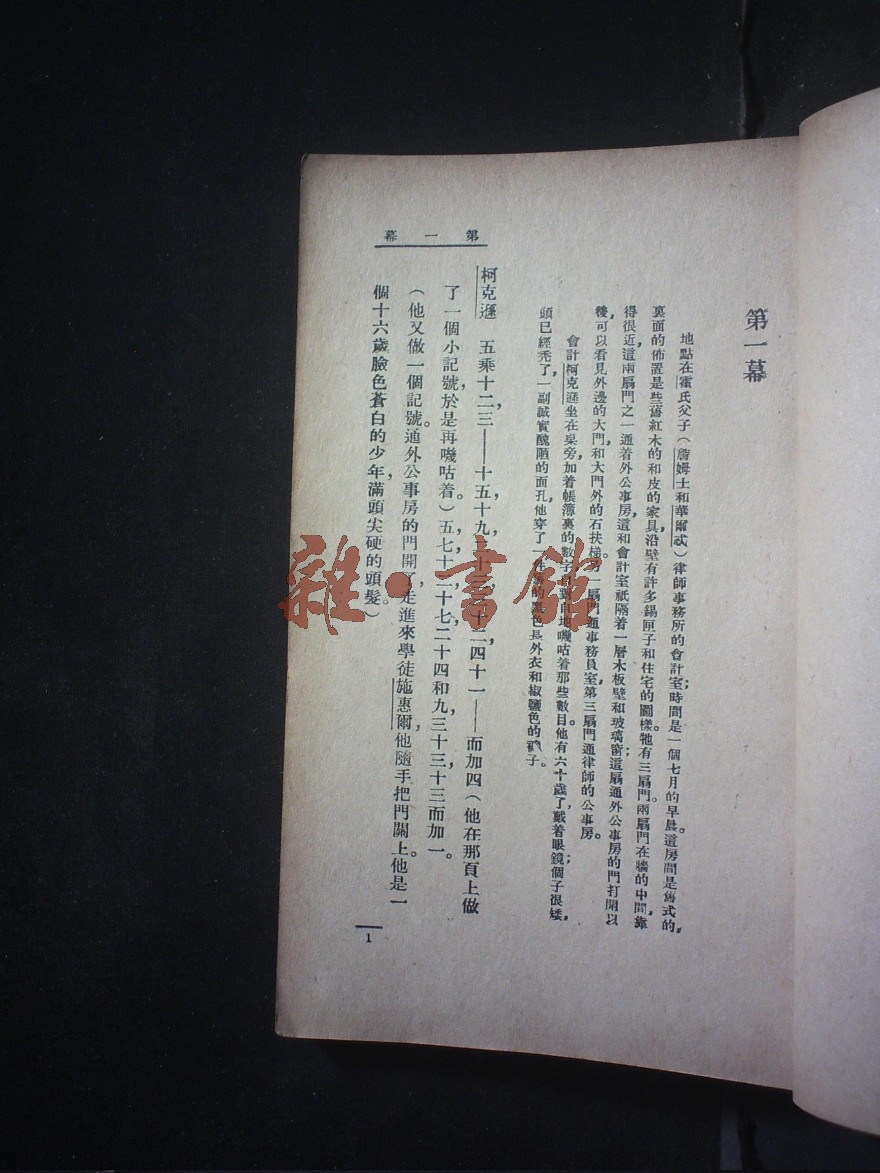 第一幕
第一幕
地點在霍氏父子（詹姆士和華爾忒）律師事務所的會計室；時間是一個七月的早晨。這房間是舊式的，
裏面的佈置是些舊紅木的和皮的家具沿壁有許多錫匣子和住宅的圖樣。牠有三扇門兩扇門在牆的中間，靠
得很近，這兩扇門之一通着外公事房，道和會計室祇隔着一層木板壁和玻璃窗；這扇通外公事房的門打開以
後可以看見外邊的大門和大門外的石扶梯。另一扇門通事務員室，第三扇門通律師的公事房。
會計柯克遜坐在桌旁，加着帳簿裏的數字，自對自地嘰咕着那些數目。他有六十歲了，戴着眼鏡；個子很矮，
頭已經禿了，一副誠實醜陋的面孔，他穿了一件舊的黑色長外衣和椒鹽色的子。
柯克遜　五乘十二，三——十五，十九，二十三，三十二，四十一——而加四（他在那頁上做
了一個小記號，於是再嘰咕着。）五，七，十二，十七，二十四和九，三十三，十三而加一。
（他又做一個記號。通外公事房的門開了，走進來學徒施惠爾，他隨手把門關上。他是一
個十六歲臉色蒼白的少年，滿頭尖硬的頭髮。）
1
雜·書館